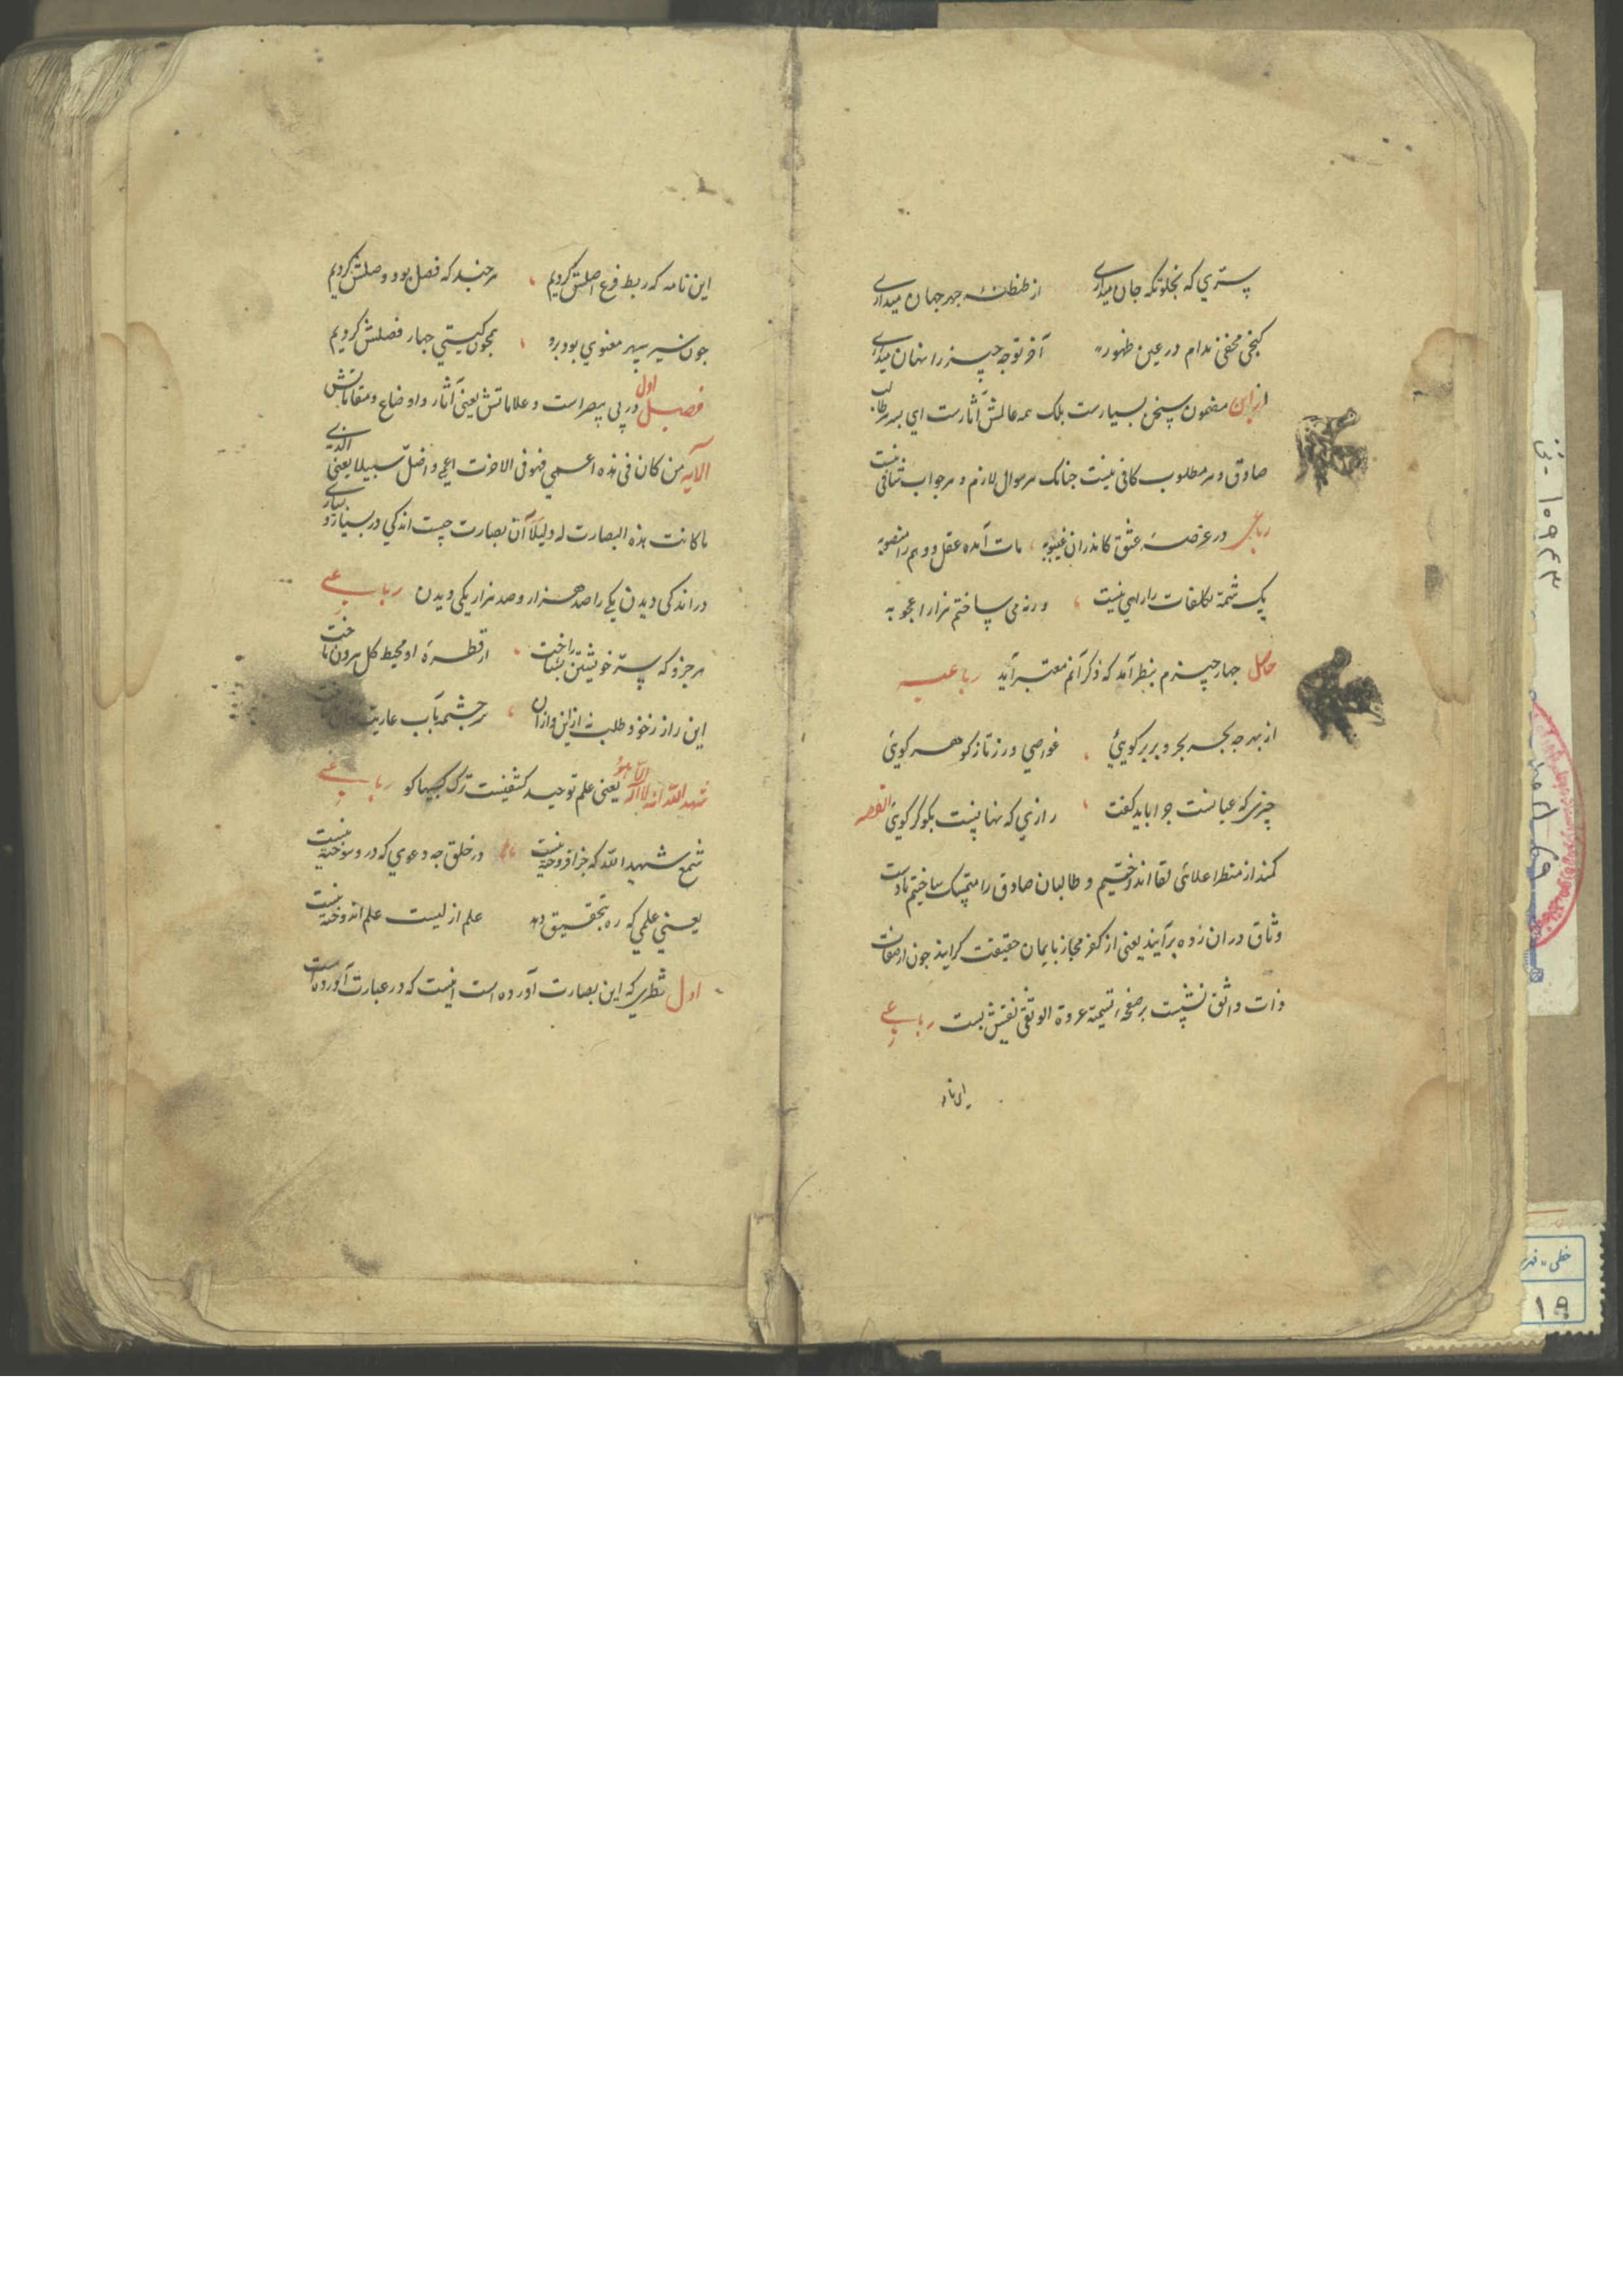 سری که بخلوتکه جان میداری از طنطنهٔ جهر جهان میداری
کنجی مخفی مدام در عین ظهور آخر تو چه چیز را نهان میداری
ازین مضمون سخن بسیارست بلک همه عالمش آثارست ای بهر طالب
صادق و هر مطلوب کافی نیست جنانک هر سوال لازم و هر جواب شافی نیست
رباعی در عرصهٔ عشق کاندران غیبوبه مات آمده عقل و وهم را منصوبه
یک شمه تکلفات را راهی نیست ورنه می ساختم هزار اعجوبه
حاصل جهار چیزم بنظر آمد که ذکر آنم معتبر آید رباعیه
از بهر چه بحر و بر بر کویی غواصی ورز تا ز کوهر کویی
چیزی که عیانست جرا باید کفت رازی که نهانیست بکو کر کویی القصه
کمند از منظر اعلائی لقا انداختیم و طالبان صادق را متمسک ساختیم تا دست
وثاق دران زده برآیند یعنی از کفر مجاز بایمان حقیقت کرایند جون از صفات
ذات واثق نشست بر صفحه تسمیه عروة الوثقی نقش بست رباعی
این نامه
این نامه که ربط فرع اصلش کردیم هر جند که فصل بود وصلش کردیم
جون سیر سپهر معنوی بود برو همجون کیتی جهار فصلش کردیم
فصل اول در بی بصر است و علاماتش یعنی آثار و اوضاع و مقاماتش
الآیه من کان فی هذه اعمی فهو فی الاخرت اعمی و اضل سبیلا یعنی الذی
ما کانت هذه البصارت له دلیلا آن بصارت چیست اندکی در بسیاری و بسیاری
در اندکی دیدن یکی را صد هزار و صد هزار یکی دیدن رباعی
هر جزو که سر خویشتن بشناخت از قطرهٔ او محیط کل بیرون تاخت
این راز ز خود طلب نه ازین و ازان سرچشمه بآب عاریت
شهد الله انه لا اله الا هو یعنی علم توحید کشفیست ترک کسبها کو رباعی
شمع شهد الله که جز افروخته نیست در خلق چه دعوی که درو سوخته نیست
یعنی علمی که ره بتحقیق دهد علم ازلیست علم اندوخته نیست
اول نظری که این بصارت آورده است اینست که در عبارت آورده است
خطی
۱۹
۱۰۹۴۳